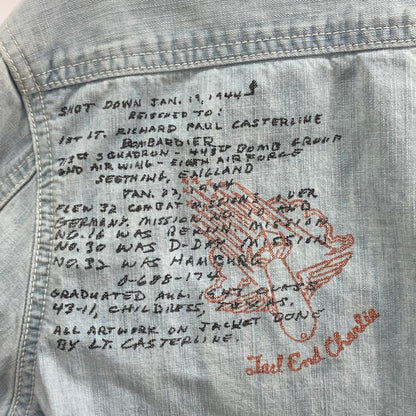 SHOT DOWN JAN. 19, 1944
REISSUED TO:
1ST LT. RICHARD PAUL CASTERLINE
BOMBARDIER
SQUADRON - 448TH BOMB GROUP
2ND AIR WING - EIGTH AIR FORCE
SEETHING, ENGLAND
JAN. 22, 1944
FLEW 32 COMBAT MISSIONS OVER
GERMANY. MISSION NO. 10 AND
NO. 16 WAS BERLIN, MISSION
NO. 30 WAS D-DAY MISSION
NO. 32 WAS HAMBURG
0-688-174
GRADUATED AUG. 1943 CLASS
43-11, CHILDRESS, TEXAS.
ALL ARTWORK ON JACKET DONE
BY LT. CASTERLINE.
Tail End Charlie